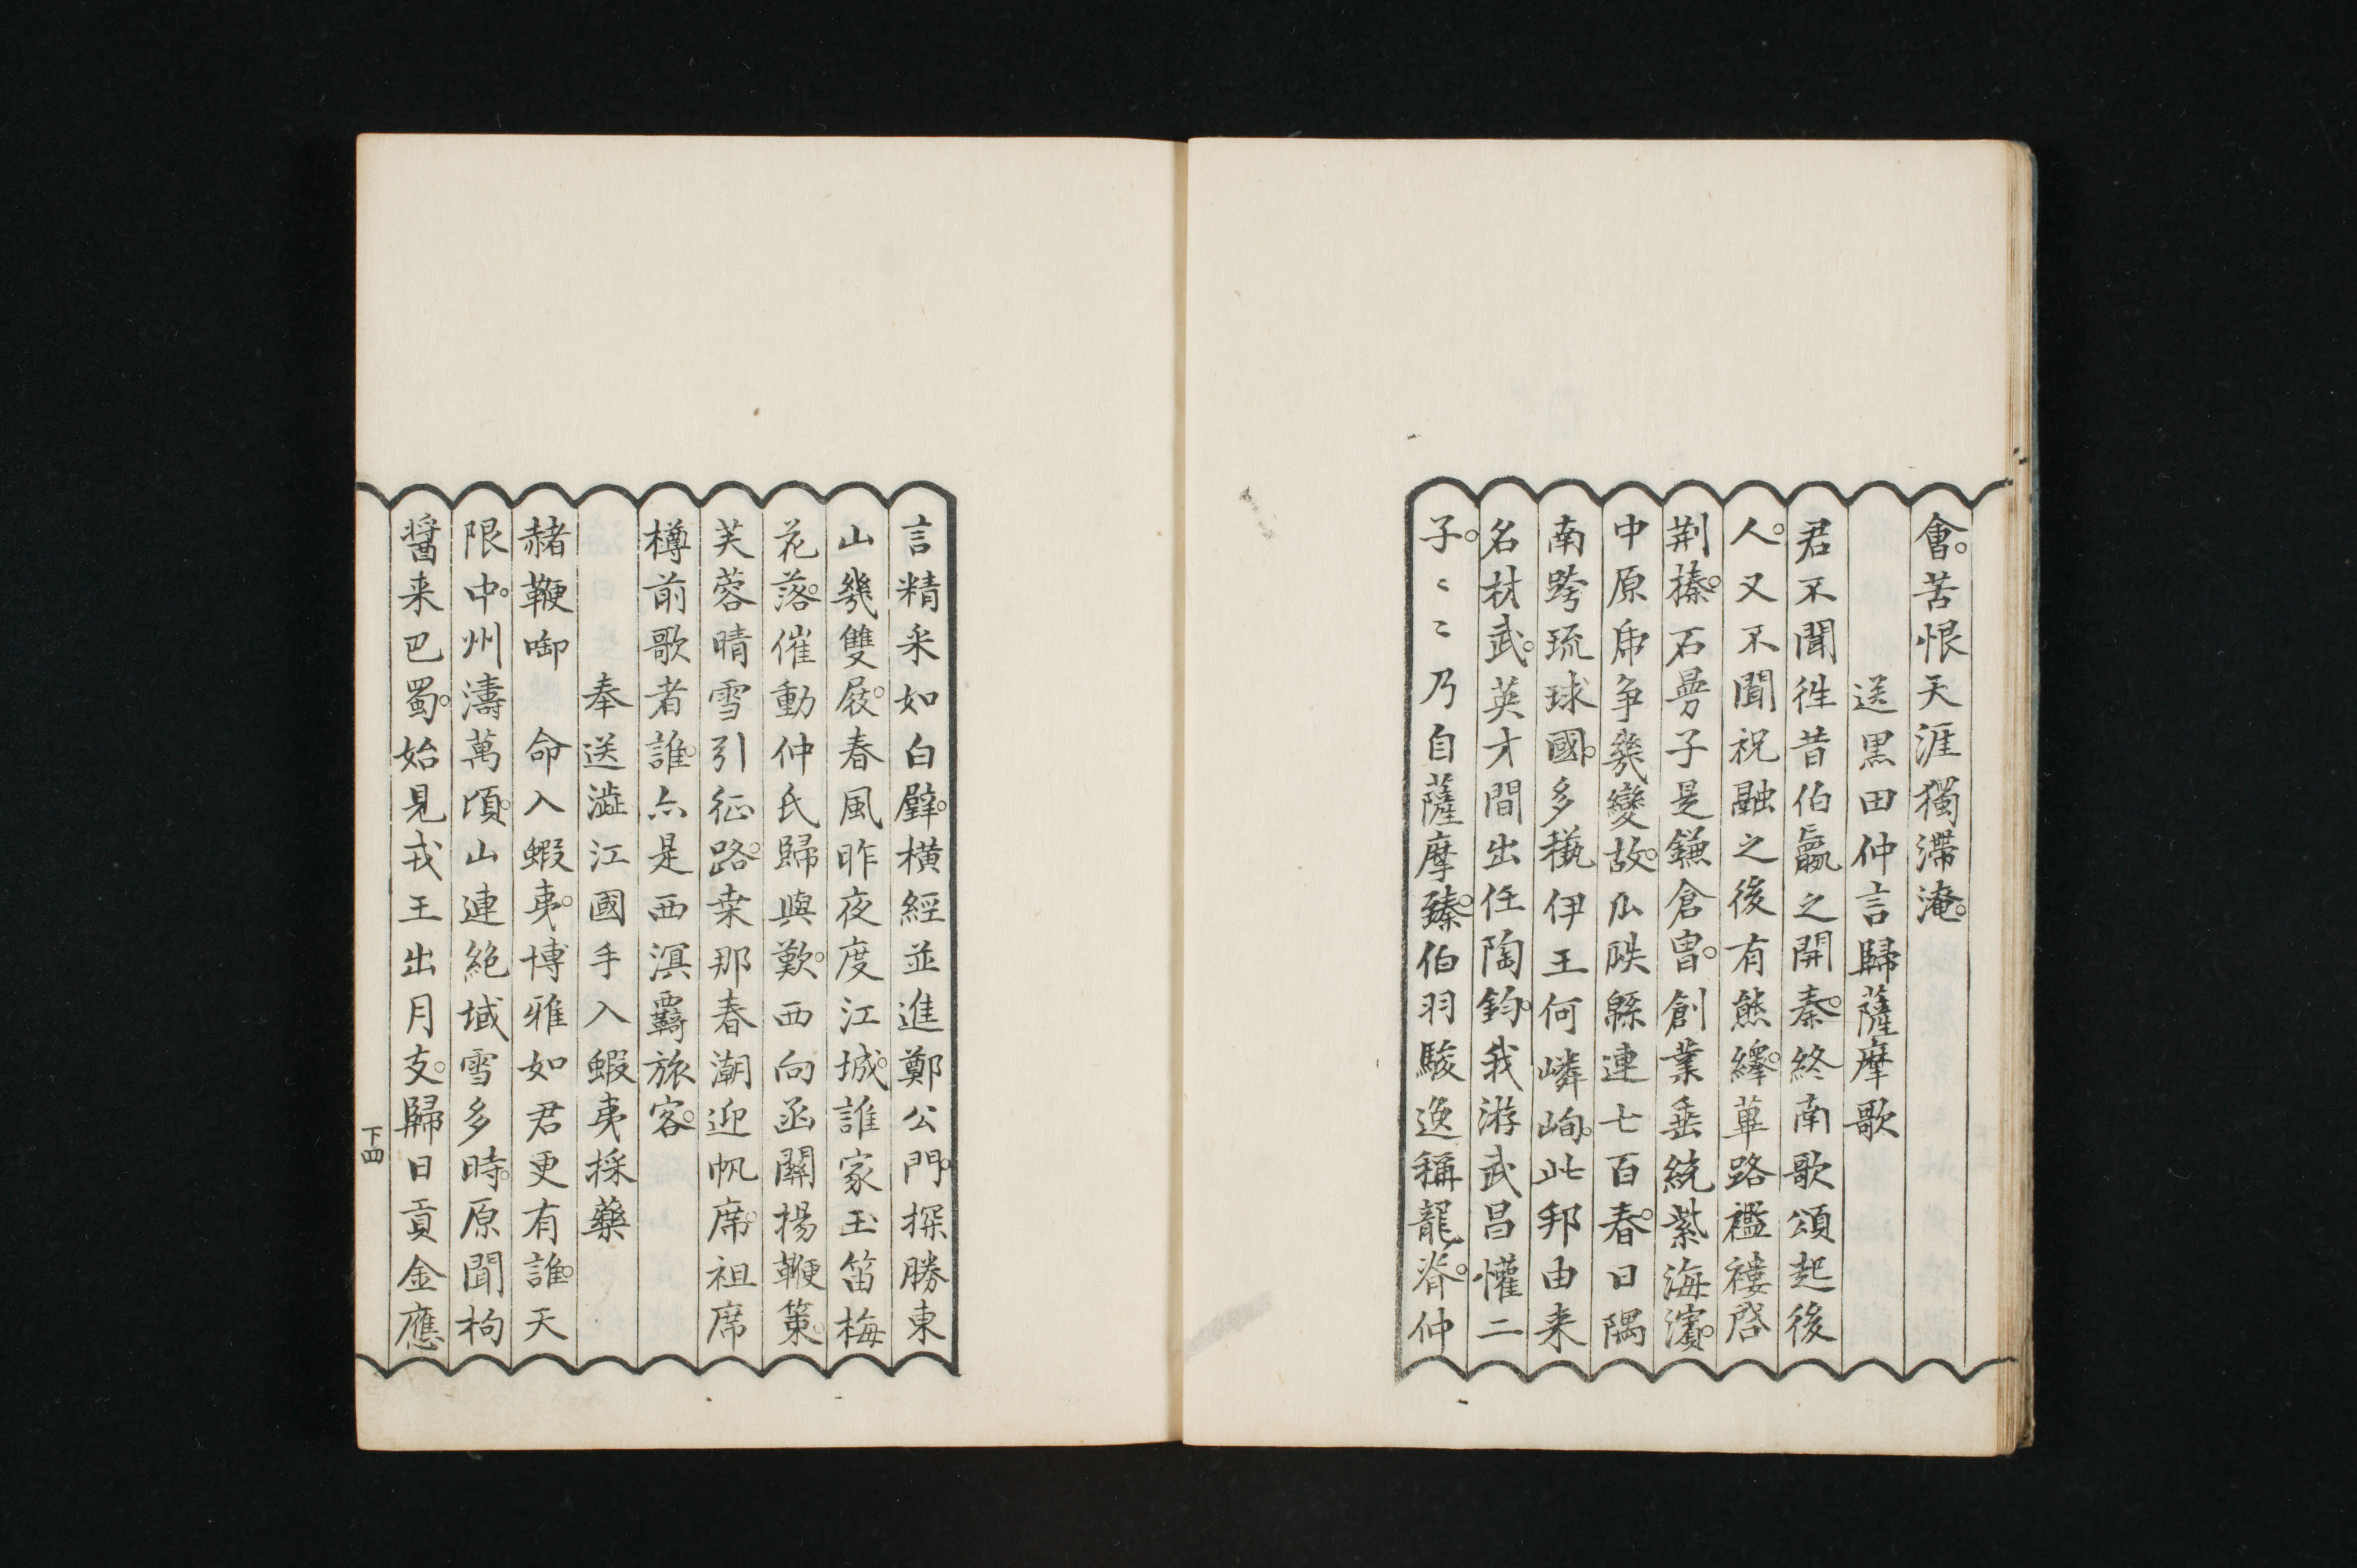 會。苦恨天涯獨滯淹。
送黒田仲言歸薩摩歌
君不聞徃昔伯翳之開秦。終南歌頌起後
人。又不聞祝融之後有熊繹。蓽路襤褸啓
荆榛。石曼子是鎌倉胄。創業垂統紫海濱。
中原乕争幾變故。瓜瓞緜連七百春。日隅
南跨琉球國。多蓺伊王何嶙峋。此邦由来
名材武。英才間出任陶鈞。我游武昌懽二
子。〻〻乃自薩摩臻。伯羽駿逸稱龍脊。仲
言精采如白璧。横經並進鄭公門。探勝東
山幾雙屐。春風昨夜度江城。誰家玉笛梅
花落。催動仲氏歸與歎。西向函關揚鞭策。
芙蓉晴雪引征路。桒那春潮迎帆席。祖席
樽前歌者誰。亦是西溟覊旅客。
奉送澁江國手入蝦夷採藥
赭鞭啣　命入蝦夷。博雅如君更有誰。天
限中州濤萬頃。山連絶域雪多時。原聞枸
醬来巴蜀。始見戎王出月支。歸日貢金應
下四